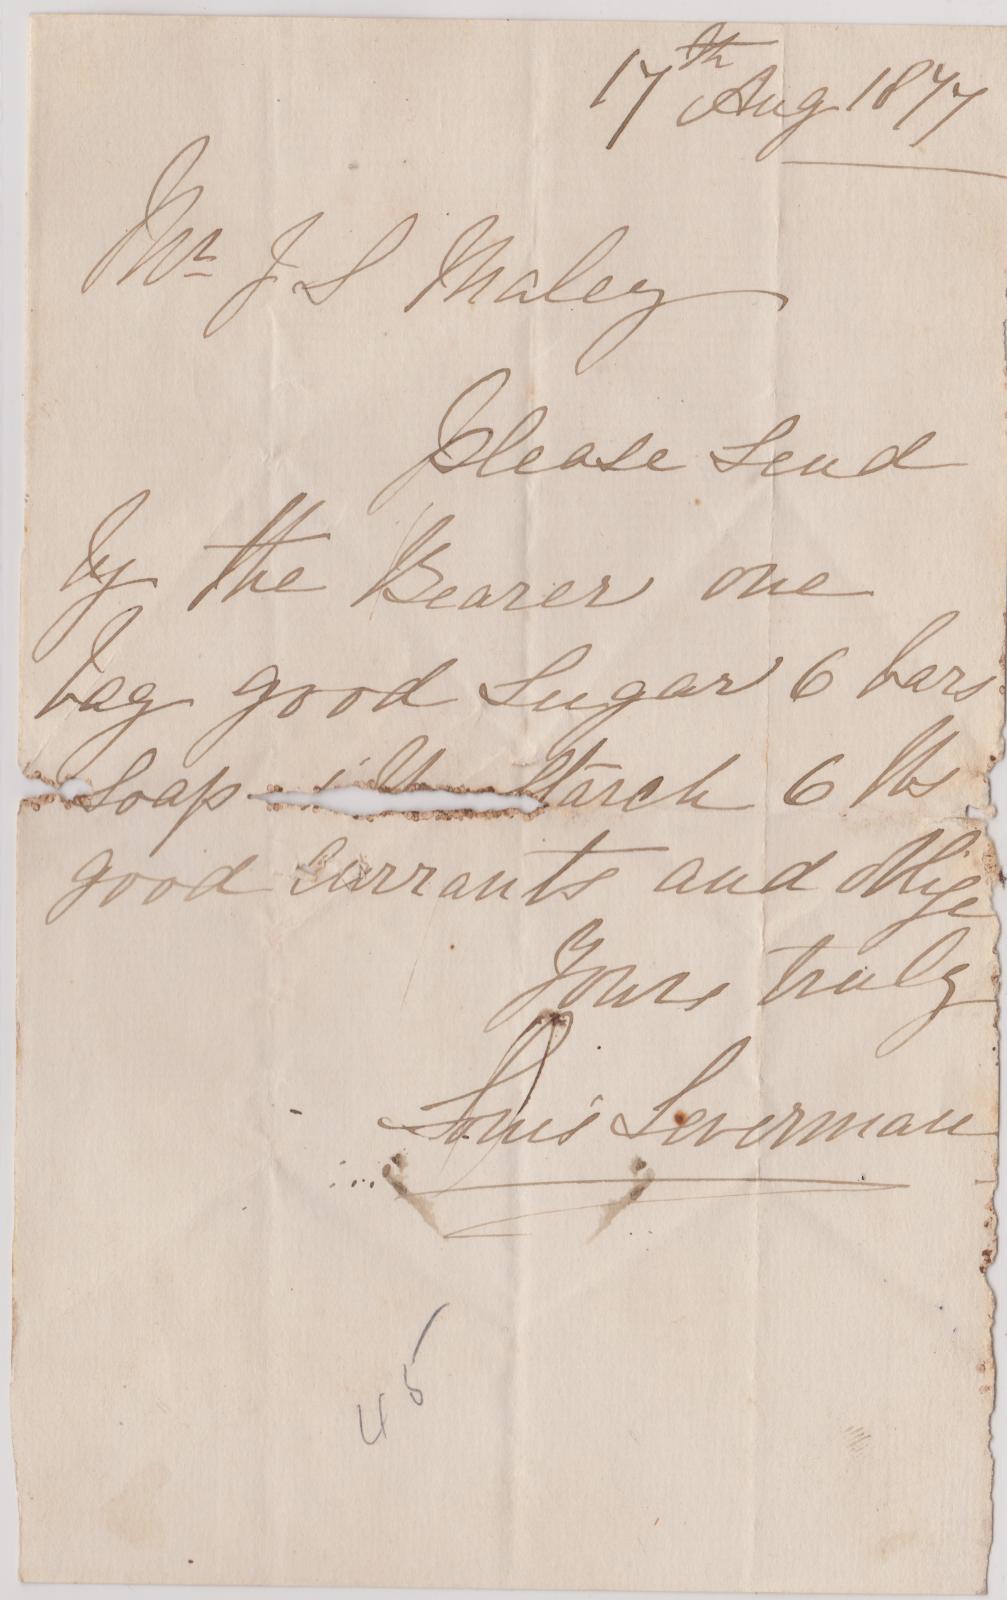 17th Aug 1877
Mr J S Maley
Please Send
by the Bearer one
bag good Sugar 6 bars
Soap Starch 6 lbs
good Currants and oblige
Yours truly
Louis Leverman
45